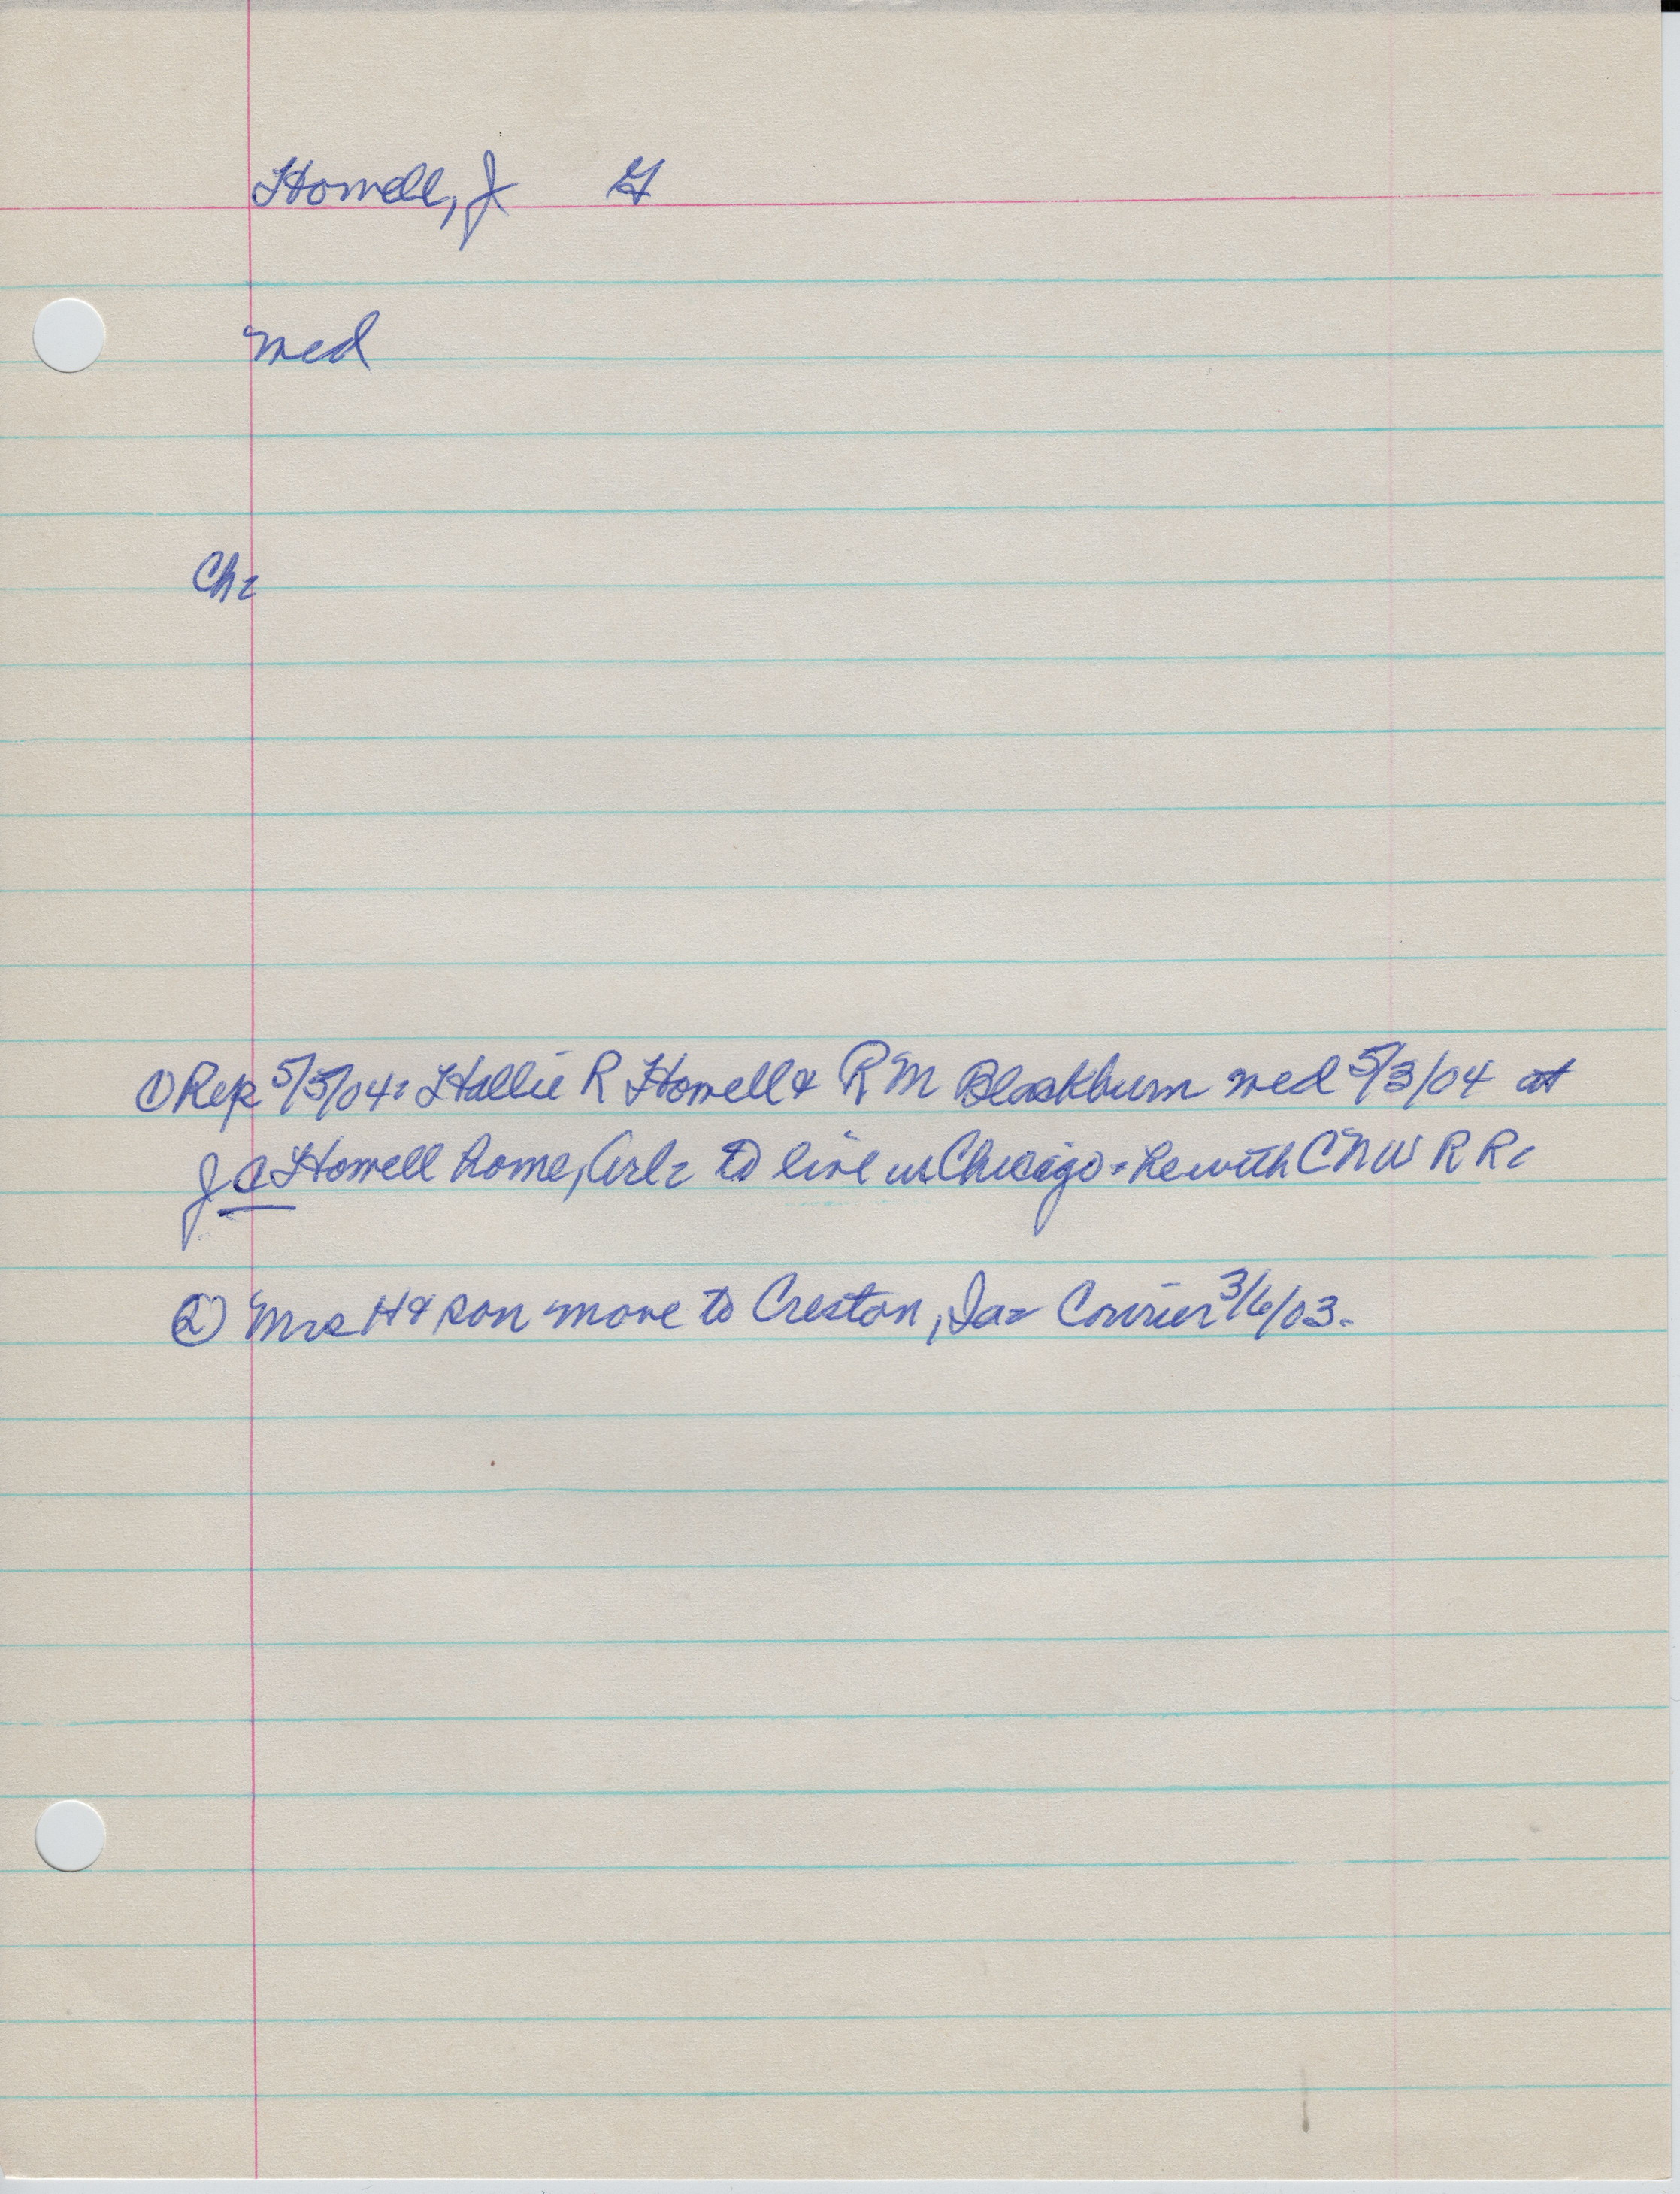 Howell, J G
med
Ch:
① Rep 5/5/04: Hallie R Howell & R M Blackburn med 5/3/04 at
J G Howell home, Arl: to live in Chicago - he with C N W R R.
② Mrs H & son move to Creston, Ia - Courier 3/6/03.